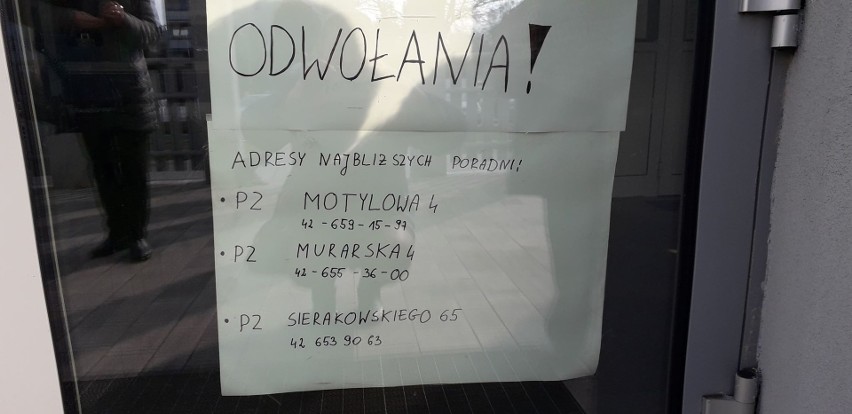 ODWOŁANIA!
ADRESY NAJBLIZSZYCH PORADNI:
• PZ MOTYLOWA 4
42-659-15-97
• PZ MURARSKA 4
42-655-36-00
• PZ SIERAKOWSKIEGO 65
42 653 90 63